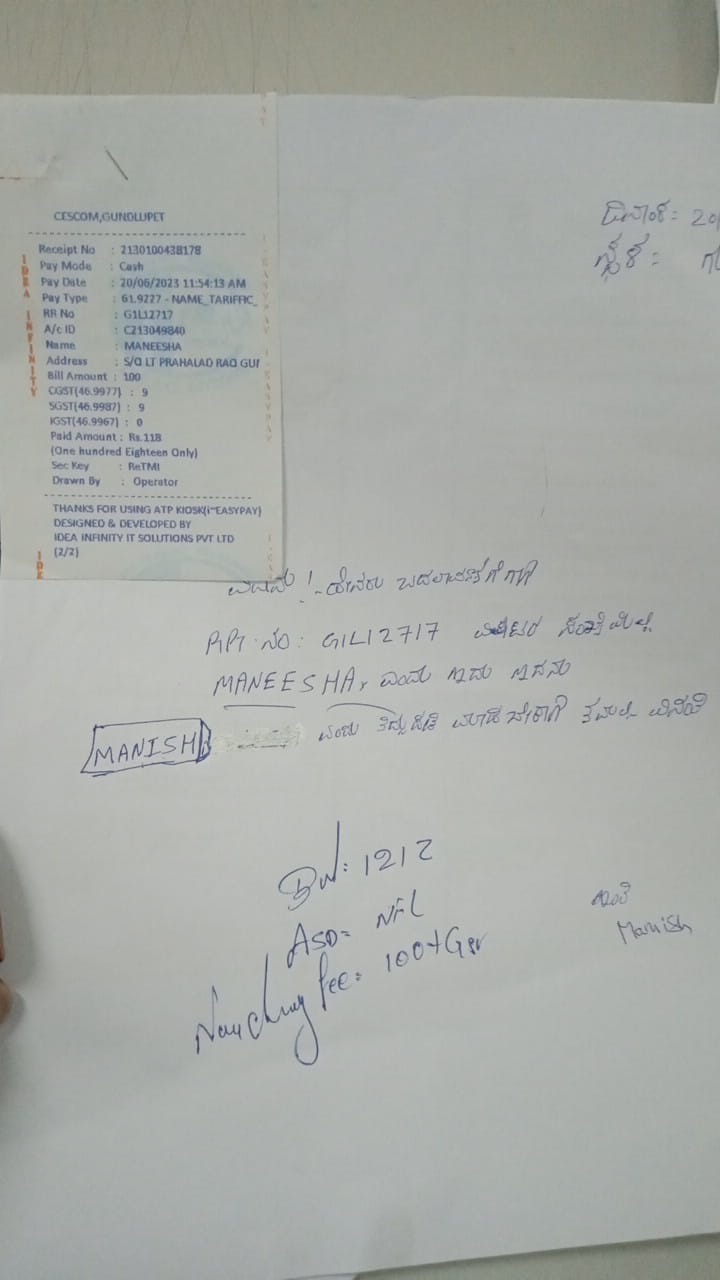 CESCOM,GUNDLUPET
Receipt No : 2130100438178
Pay Mode : Cash
Pay Date : 20/06/2023 11:54:13 AM
Pay Type : 61.9227 - NAME_TARIFFIC_
RR No : G1L12717
A/c ID : C213049840
Name : MANEESHA
Address : S/O LT PRAHALAD RAO GUI
Bill Amount : 100
CGST(46.9977) : 9
SGST(46.9987) : 9
IGST(46.9967) : 0
Paid Amount : Rs.118
(One hundred Eighteen Only)
Sec Key : ReTMI
Drawn By : Operator
THANKS FOR USING ATP KIOSK(i~EASYPAY)
DESIGNED & DEVELOPED BY
IDEA INFINITY IT SOLUTIONS PVT LTD
(2/2)
IDEA INFINITY
ದಿನಾಂಕ: 20
ಸ್ಥಳ:
ವಿಷಯ: ಹೆಸರು ಬದಲಾವಣೆಗಾಗಿ
ನಂ: G1L12717
MANEESHA, ಎಂದು ಇದು
MANISH ಎಂದು ತಿದ್ದುಪಡಿ ಮಾಡಬೇಕಾಗಿ ವಿನಂತಿ
Bill: 1212
ASD= NIL
fee: 100+Gst
ಇಂತಿ
Manish